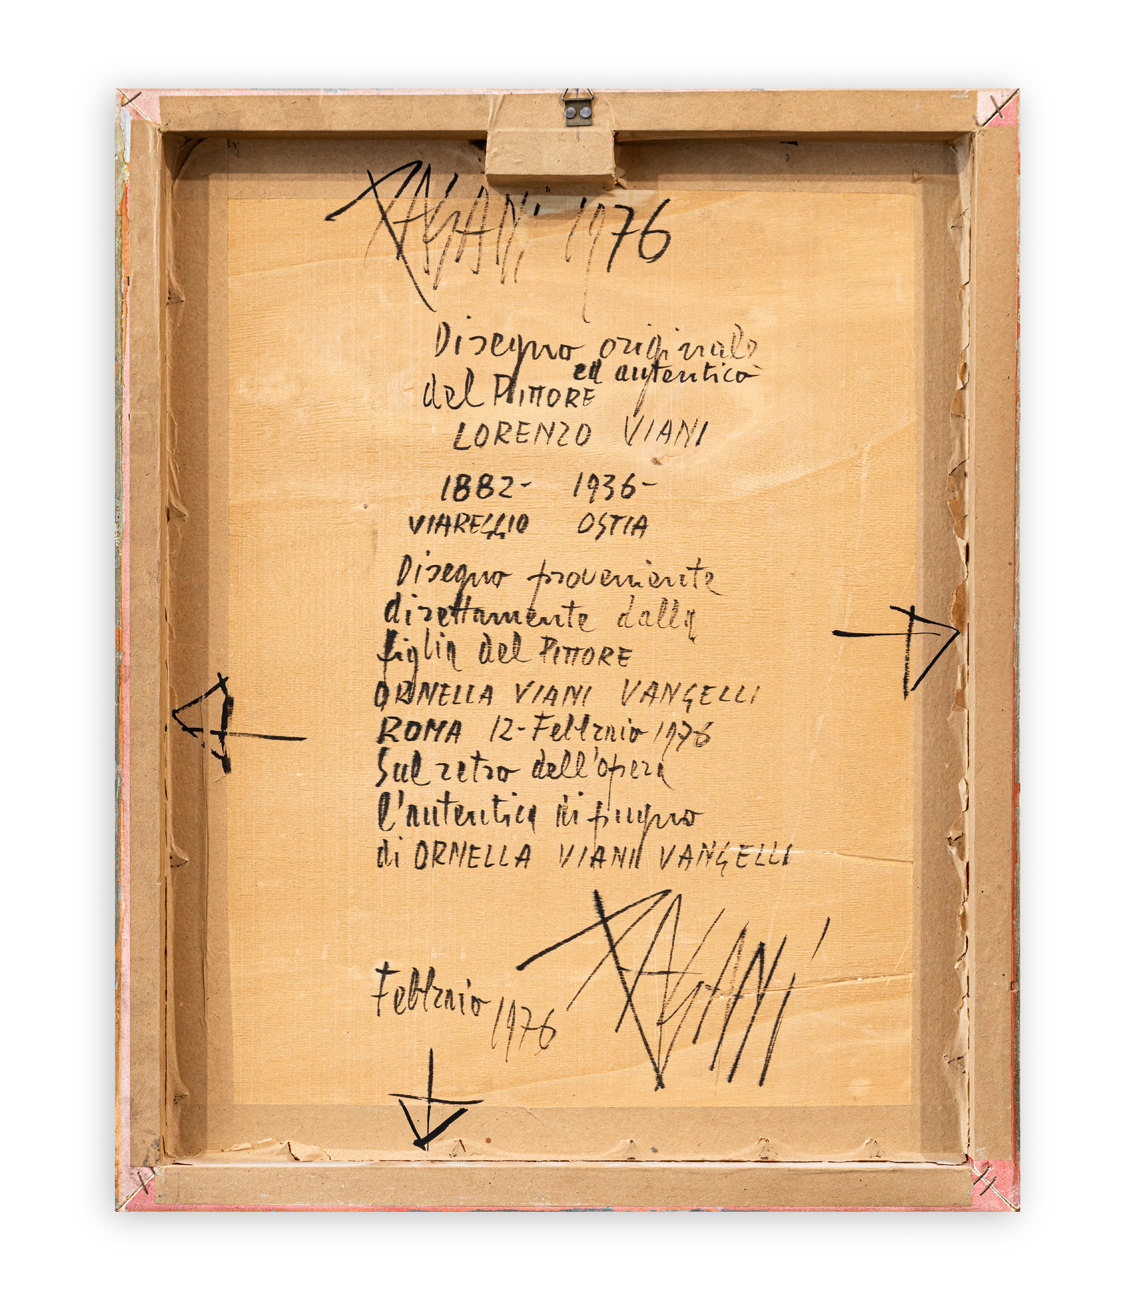 PAGANI 1976
Disegno originale
ed autentico
del PITTORE
LORENZO VIANI
1882- 1936-
VIAREGGIO OSTIA
Disegno proveniente
direttamente dalla
figlia del PITTORE
ORNELLA VIANI VANGELLI
ROMA 12-Febbraio 1976
Sul retro dell'opera
l'autentica di pugno
di ORNELLA VIANI VANGELLI
PAGANI
Febbraio 1976